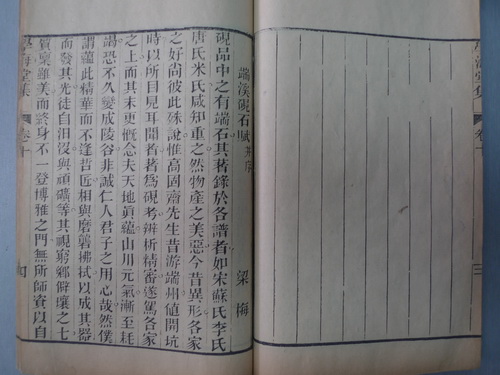 學海堂集
卷十
三
端溪硯石賦 并序
梁梅
硯品中之有端石其著錄於各譜者如宋蘇氏李氏
唐氏米氏咸知重之然物產之美惡今昔異形各家
之好尚彼此殊說惟高固齋先生昔游端州値開坑
時以所目見耳聞者著爲硯考辨析精審遂駕各家
之上而末更慨念夫天地眞蘊山川元氣漸至耗
竭恐不久變成陵谷非誠仁人君子之用心哉然僕
謂蘊此精華而不逢哲匠相與磨礱拂拭以成其器
而發其光徒自汨沒與頑礦等其視窮鄉僻壤之士
質稟雖美而終身不一登博雅之門無所師資以自
學海堂集
卷十